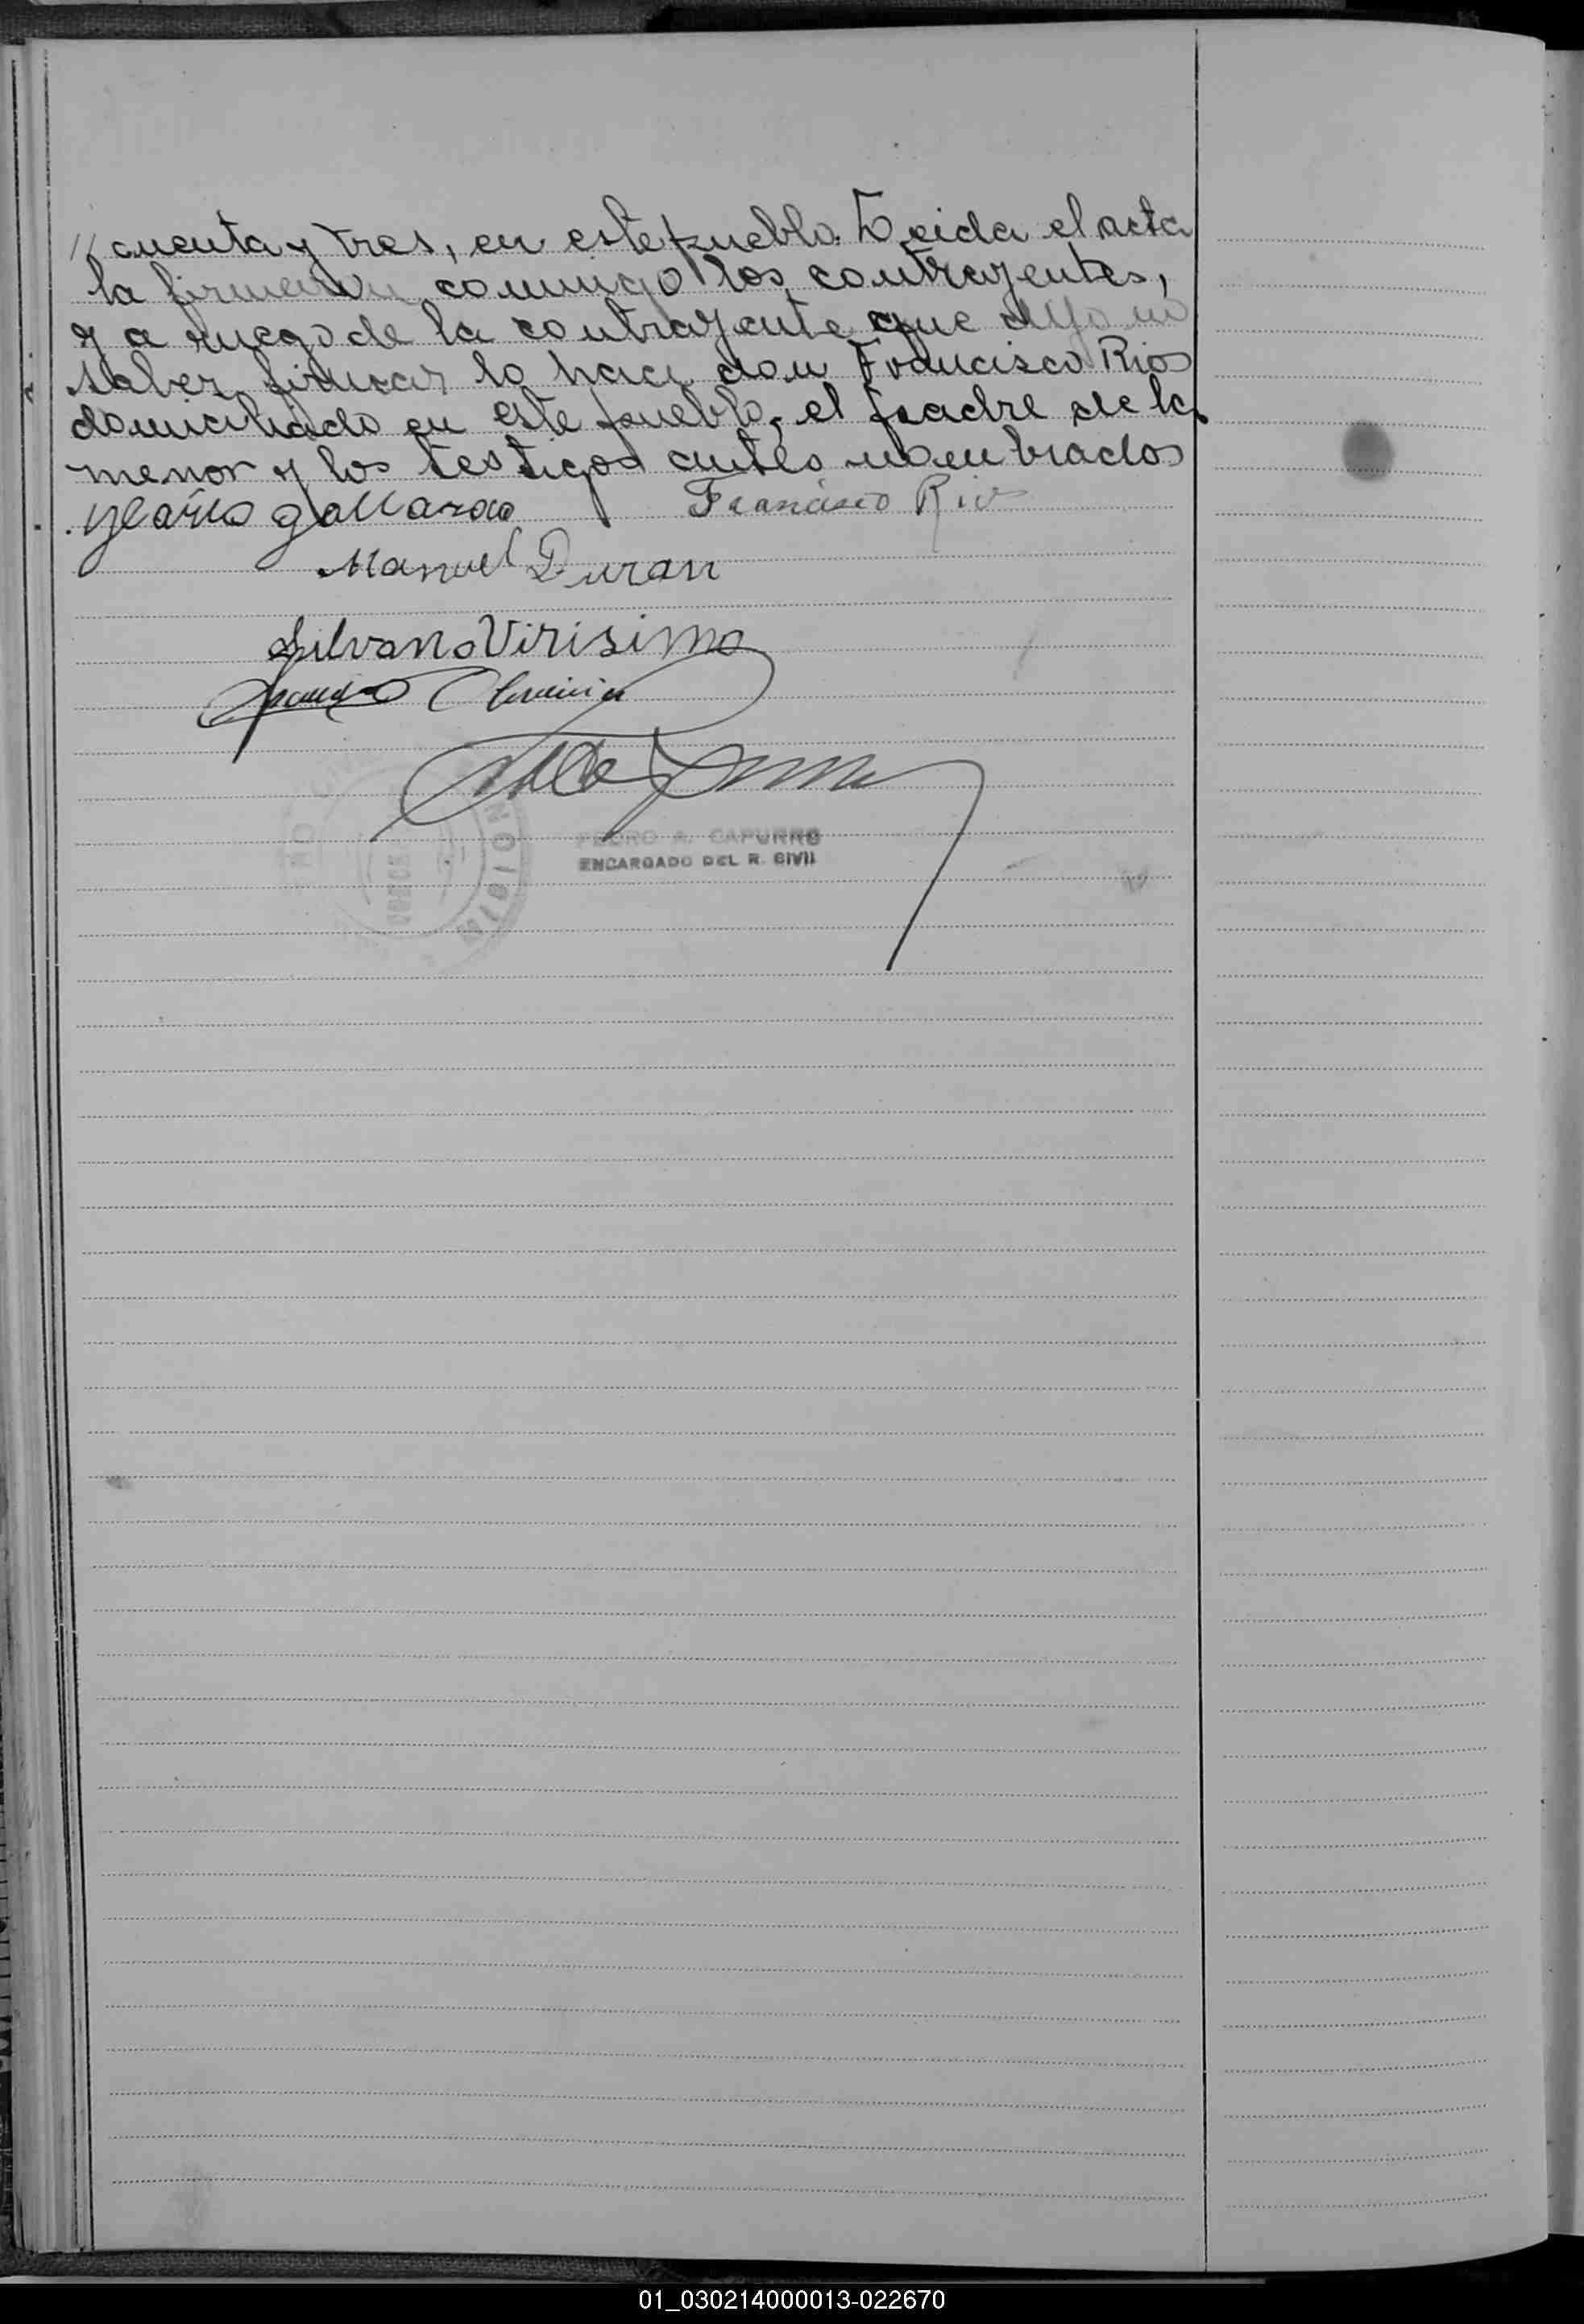 // cuenta y tres, en este pueblo. Leida el acta
la firmaron conmigo los contrayentes,
y a ruego de la contrayente que dijo no
saber firmar lo hace don Francisco Rios
domiciliado en este pueblo, el padre de la
menor y los testigos antes nombrados
Ylario gallardo Francisco Rios
Manuel Duran
Silvano Virisimo
PEDRO A. CAPURRO
ENCARGADO DEL R. CIVIL
01_030214000013-022670